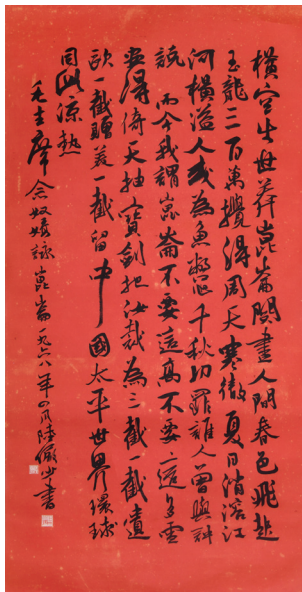 橫空出世莽崑崙閱盡人間春色飛起
玉龍三百萬攪得周天寒徹夏日消溶江
河橫溢人或為魚鱉千秋功罪誰人曾與評
說而今我謂崑崙不要這高不要這多雪
安得倚天抽寶劍把汝裁為三截一截遺
歐一截贈美一截留中國太平世界環球
同此涼熱
毛主席念奴嬌詠崑崙一九六八年四月陸儼少書